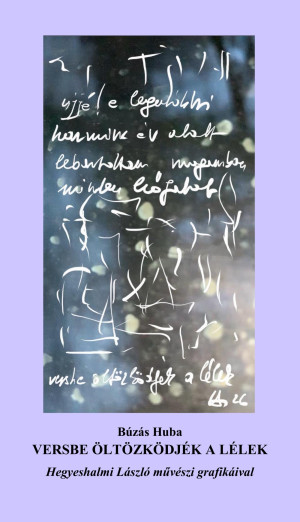 ujjé! e legutóbbi
harminc év alatt
lebontottam magamban
minden
versbe öltözködjék a lélek
Búzás Huba
VERSBE ÖLTÖZKÖDJÉK A LÉLEK
Hegyeshalmi László művészi grafikáival